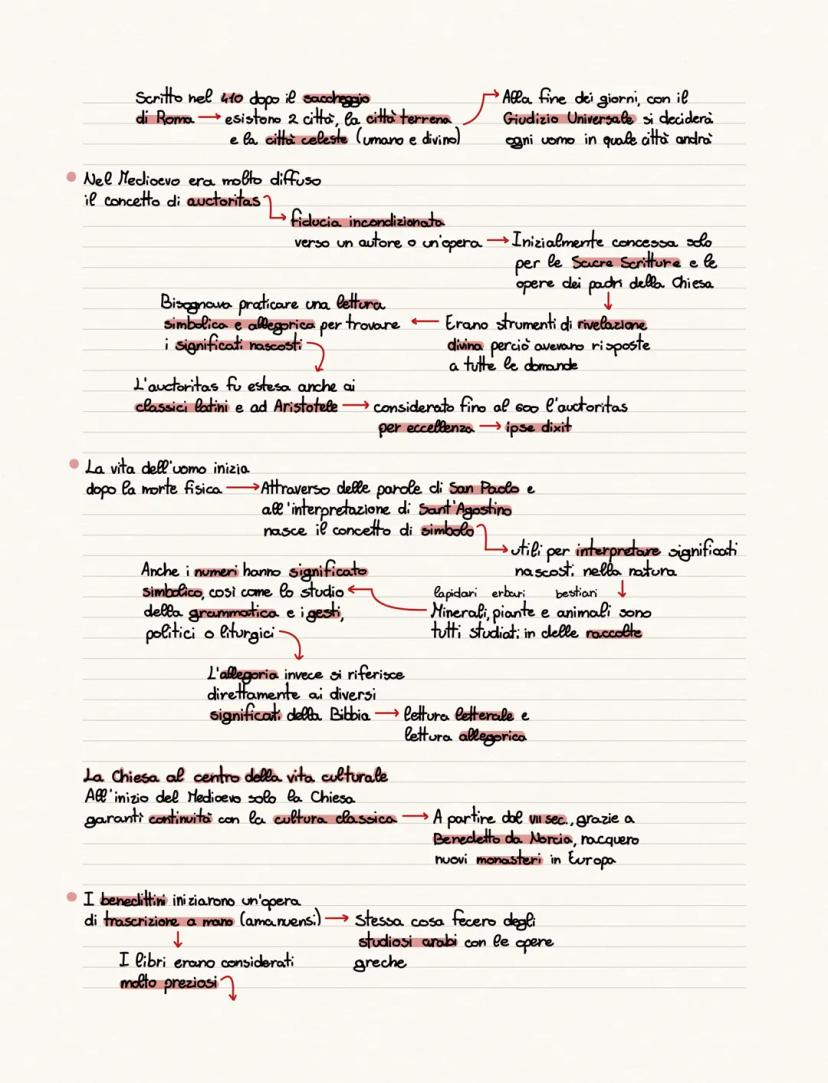 Scritto nel 410 dopo il saccheggio
di Roma → esistono 2 città, la città terrena
e la città celeste (umano e divino)
Alla fine dei giorni, con il
Giudizio Universale si deciderà
ogni uomo in quale città andrà
Nel Medioevo era molto diffuso
il concetto di auctoritas
fiducia incondizionata
verso un autore o un'opera → Inizialmente concessa solo
per le Sacre Scritture e le
opere dei padri della Chiesa
Erano strumenti di rivelazione
divina perciò avevano risposte
a tutte le domande
Bisognava praticare una lettura
simbolica e allegorica per trovare
i significati nascosti
L'auctoritas fu estesa anche ai
classici latini e ad Aristotele → considerato fino al 600 l'auctoritas
per eccellenza → ipse dixit
La vita dell'uomo inizia
dopo la morte fisica → Attraverso delle parole di San Paolo e
all'interpretazione di Sant'Agostino
nasce il concetto di simbolo
utili per interpretare significati
nascosti nella natura
lapidari erbari bestiari
Minerali, piante e animali sono
tutti studiati in delle raccolte
Anche i numeri hanno significato
simbolico, così come lo studio
della grammatica e i gesti,
politici o liturgici
L'allegoria invece si riferisce
direttamente ai diversi
significati della Bibbia → lettura letterale e
lettura allegorica
La Chiesa al centro della vita culturale
All'inizio del Medioevo solo la Chiesa
garantì continuità con la cultura classica → A partire dal VII sec., grazie a
Benedetto da Norcia, nacquero
nuovi monasteri in Europa
I benedittini iniziarono un'opera
di trascrizione a mano (amanuensi) → Stessa cosa fecero degli
studiosi arabi con le opere
greche
I libri erano considerati
molto preziosi